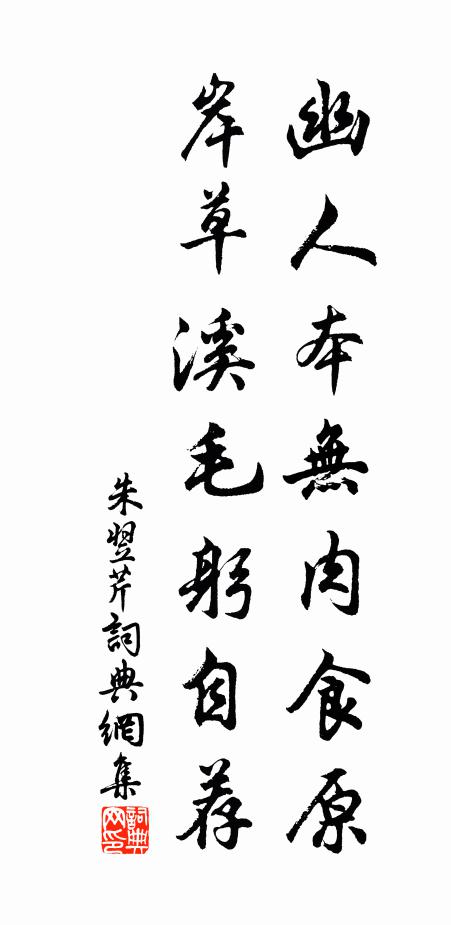 幽人本無肉食原
岸草溪毛躬自荐
朱翌芹詞典網集
詞典网印